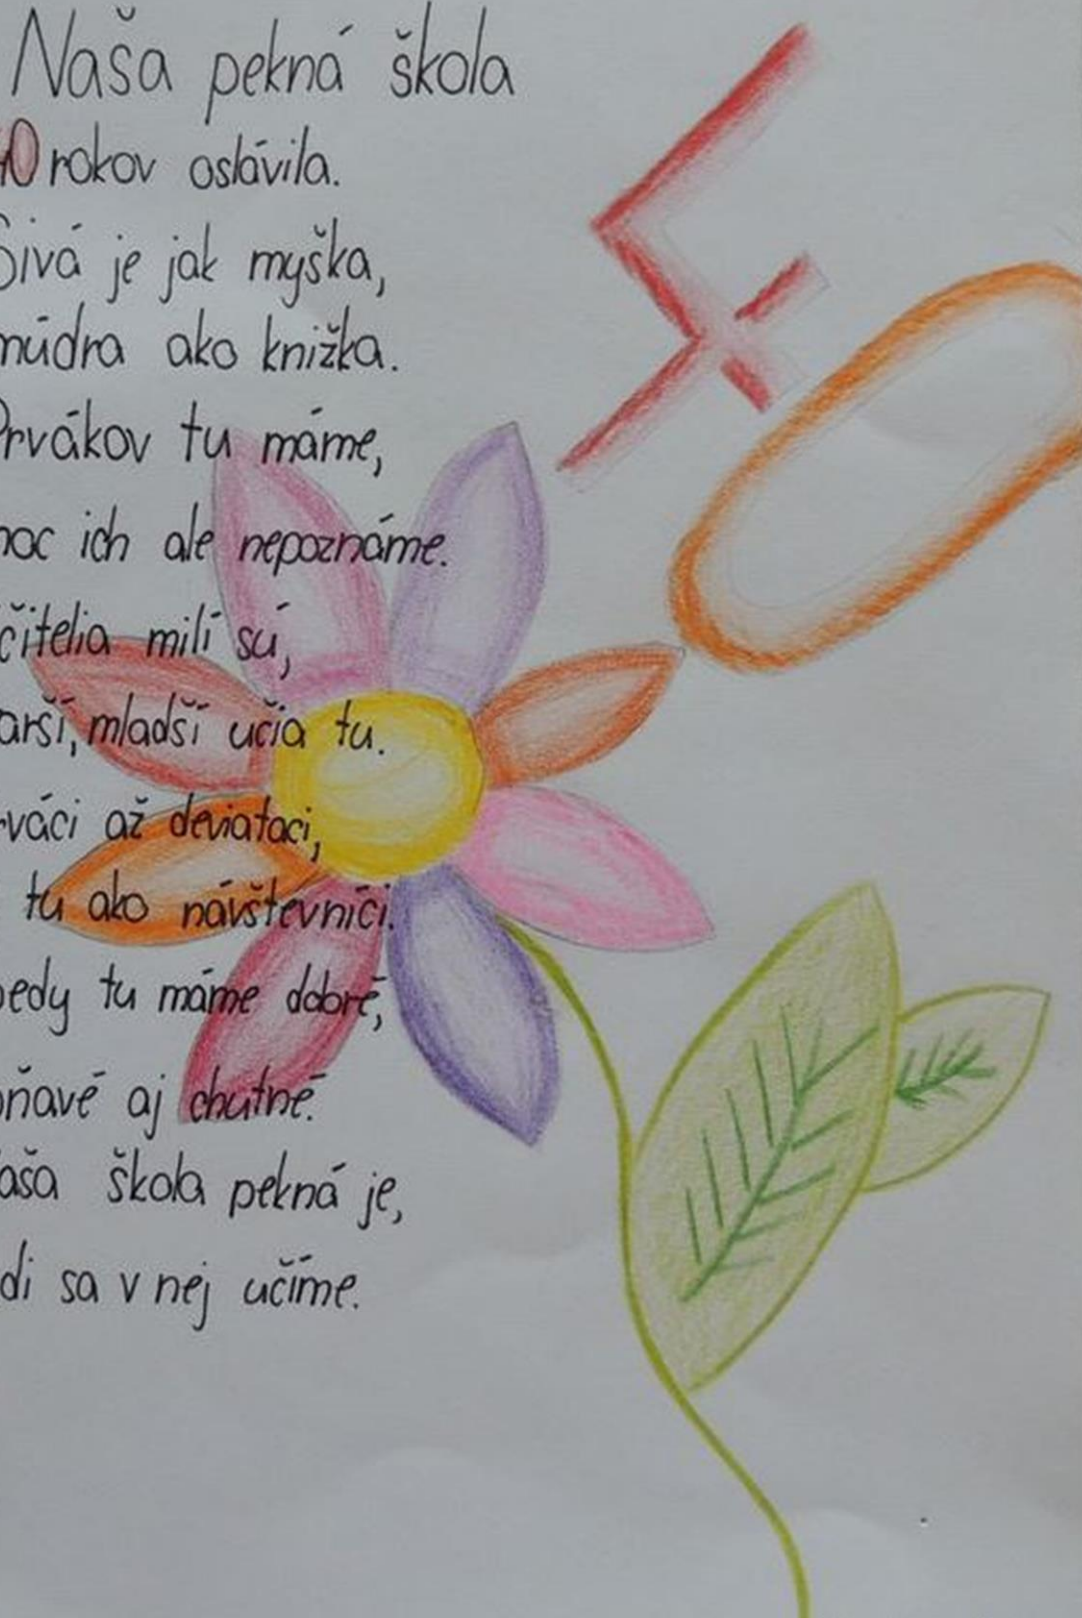 Naša pekná škola
40 rokov oslávila.
Sivá je jak myška,
múdra ako knižka.
Prvákov tu máme,
moc ich ale nepoznáme.
čitelia milí sú,
arší, mladší učia tu.
rváci až deviataci,
tu ako návštevníci.
bedy tu máme dobré,
oňavé aj chutné.
aša škola pekná je,
di sa v nej učíme.
40